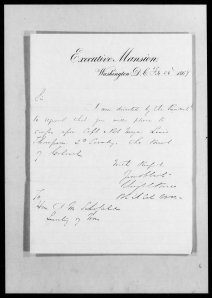 Executive Mansion,
Washington, D.C. Feb 1869
Sir
I am directed by the President
to request that you will please to
confer upon Capt & Bvt Major Lewis
Thompson 2d Cavalry the Brevet
of Colonel
With Respect
To
Hon J M Schofield
Secretary of War